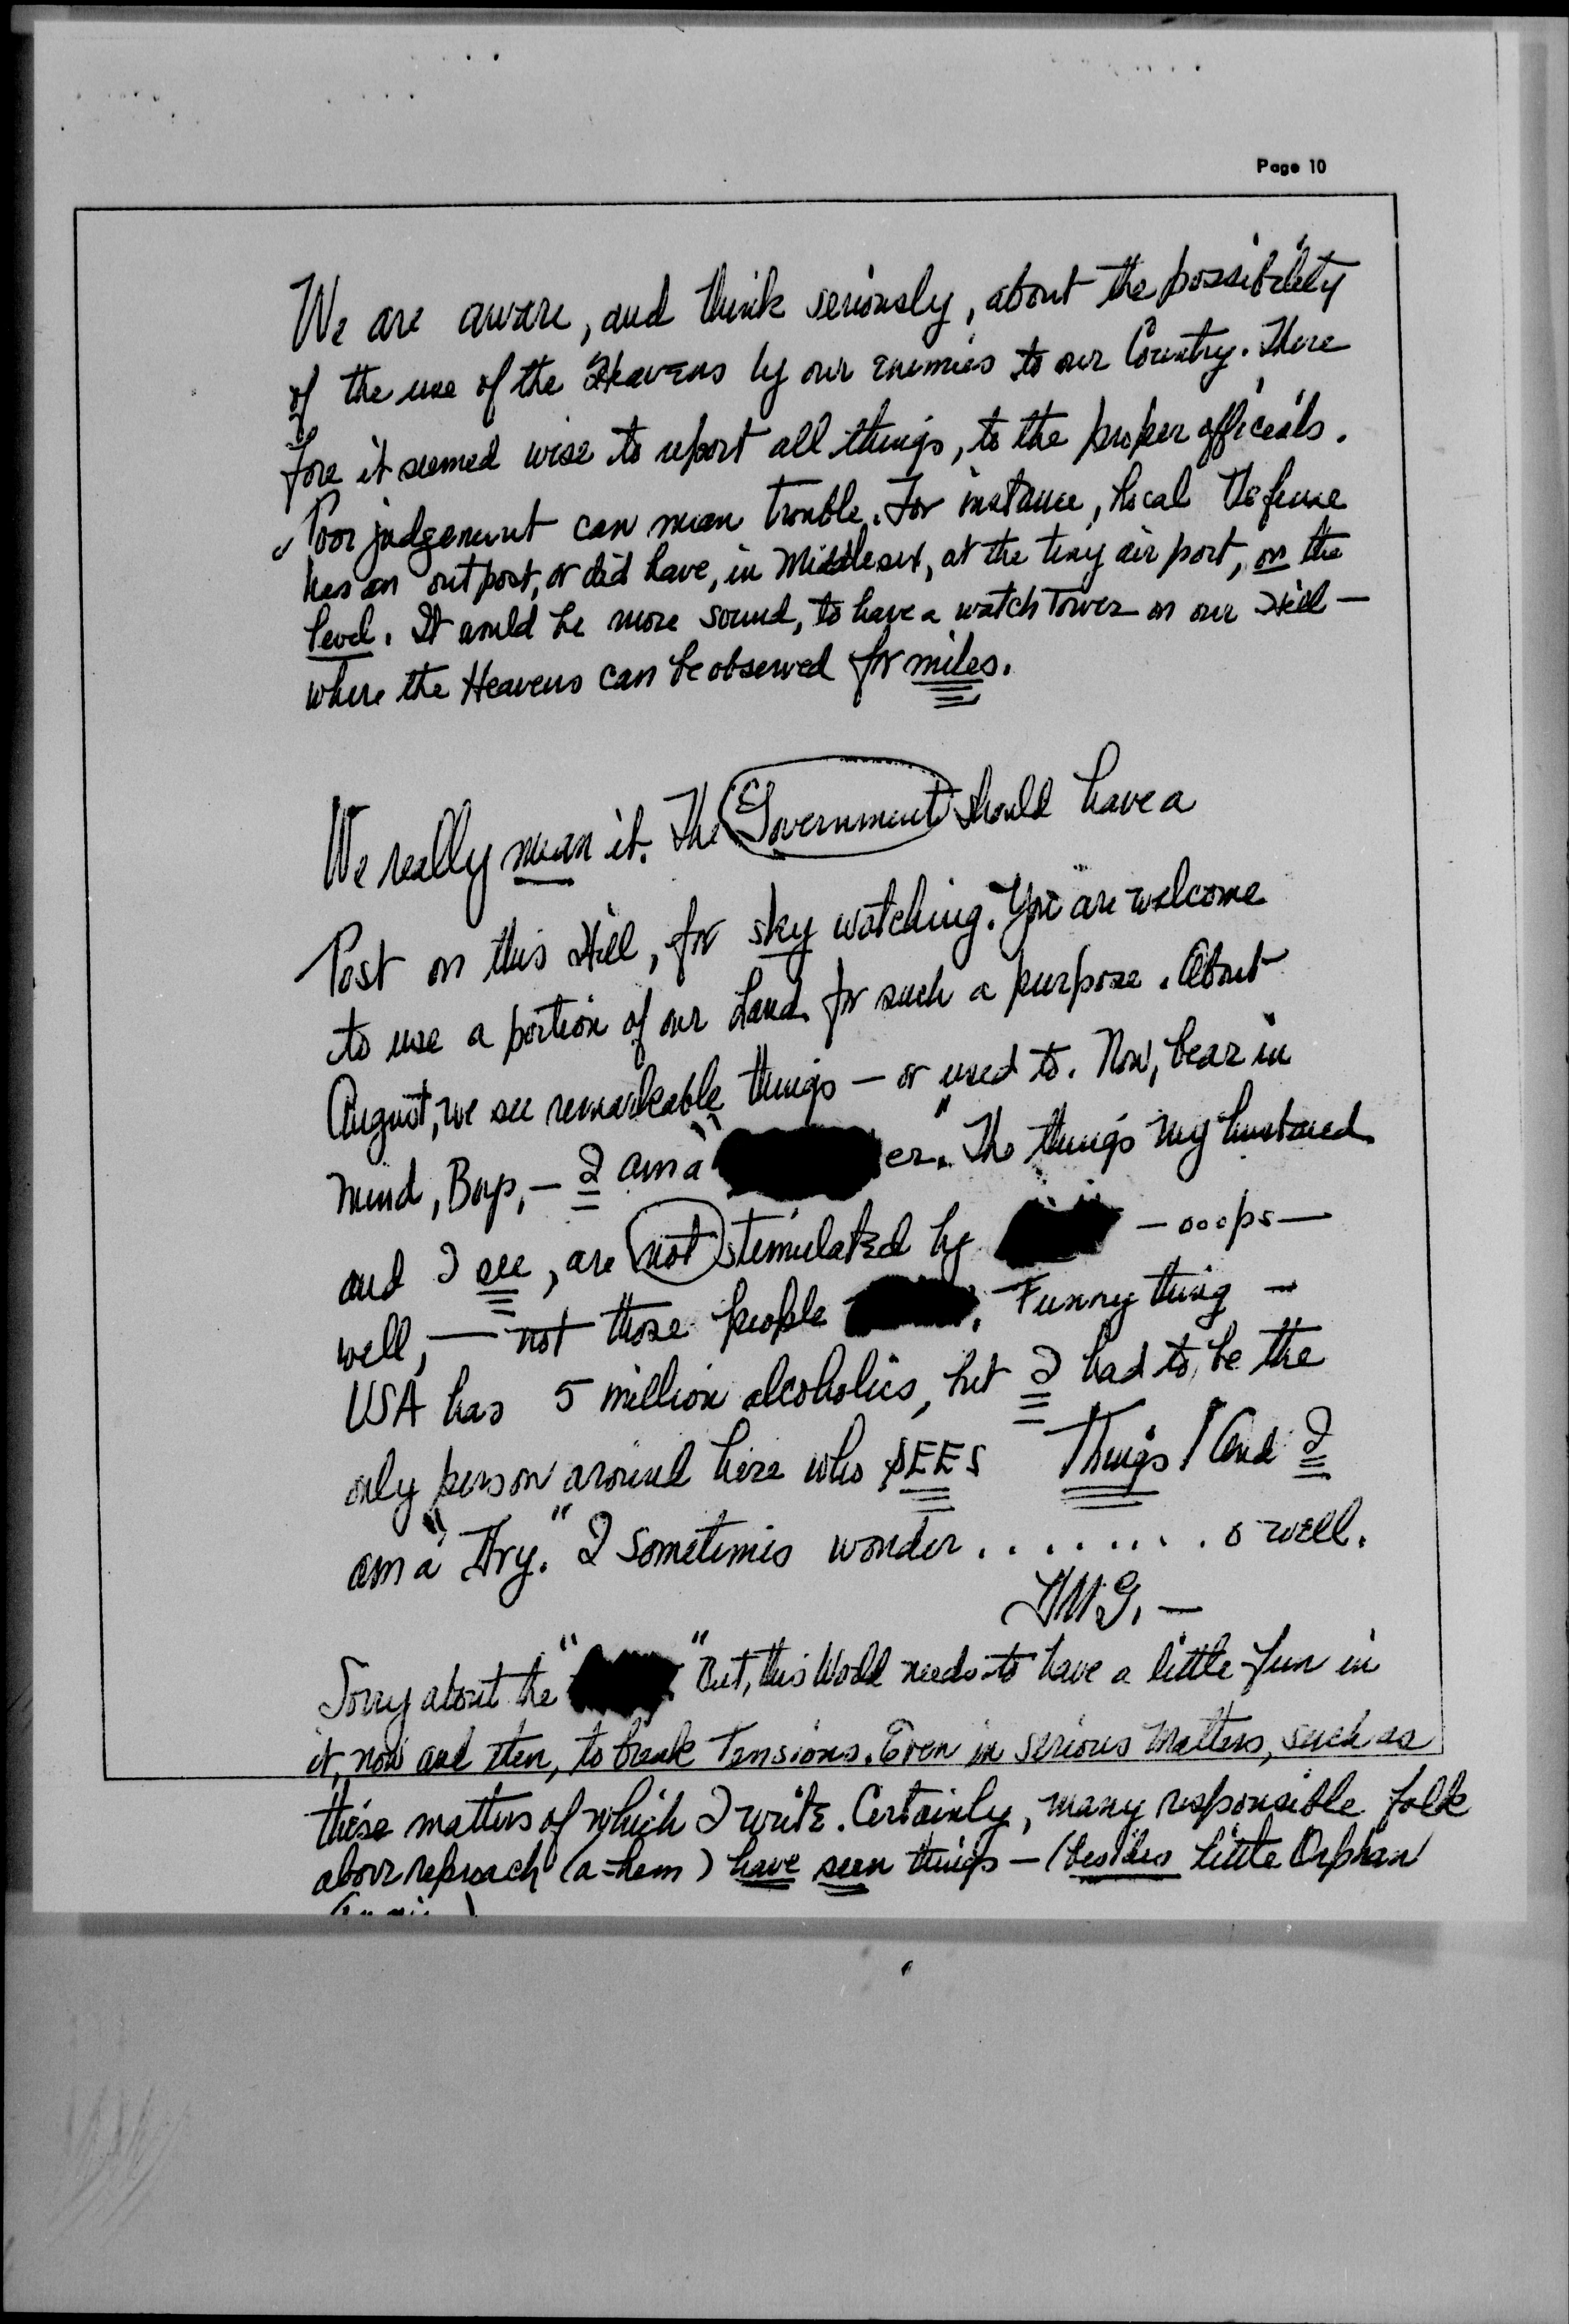 Page 10
We are aware, and think seriously, about the possibility
of the use of the Heavens by our enemies to our Country. There
fore it seemed wise to report all things, to the proper officials.
Poor judgement can mean trouble. For instance, Local Defense
has an outpost, or did have, in Middlesex, at the tiny air port, on the
level. It would be more sound, to have a watch Tower on our Hill —
where the Heavens can be observed for miles.
We really mean it. The Government should have a
Post on this Hill, for sky watching. You are welcome
to use a portion of our Land for such a purpose. About
August, we see remarkable things — or used to. Now, bear in
mind, Boys, — I am a " er". The things my husband
and I see, are not stimulated by — ooops —
well, — not those people . Funny thing —
USA has 5 million alcoholics, but I had to be the
only person around here who SEES Things! And I
am a "Dry." I sometimes wonder . . . . . . . . o well.
Sorry about the " " But, this World needs to have a little fun in
it, now and then, to break Tensions. Even in serious matters, such as
these matters of which I write. Certainly, many responsible folk
above reproach (a-hem) have seen things — (besides Little Orphan